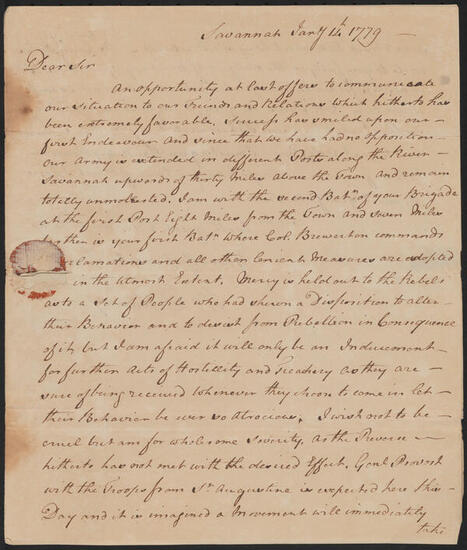 Savannah Jany 14th 1779
Dear Sir
An opportunity at last offers to communicate
our Situation to our Friends and Relations which hitherto has
been extremely favorable. Success has smiled upon our
first Endeavour and since that we have had no opposition
our Army is extended in different Posts along the River
Savannah upwards of thirty Miles above the Town and remain
totally unmolested. I am with the second Batn. of your Brigade
at the first Post Eight Miles from the Town and seven Miles
further is your first Batn. where Col. Brewerton commands
Proclamations and all other Lenient Measures are adopted
in the utmost Extent. Mercy is held out to the Rebels
as to a Set of People who had shewn a Disposition to alter
their Behavior and to desist from Rebellion in Consequence
of it, but I am afraid it will only be an Inducement
for further Acts of Hostility and Treachery as they are
sure of being received whenever they choose to come in let
their Behavior be ever so Atrocious. I wish not to be
cruel but am for wholesome Severity. As the Reverse
hitherto has not met with the desired Effect. Genl. Provost
with the Troops from St. Augustine is expected here this
Day and it is imagined a Movement will immediately
take